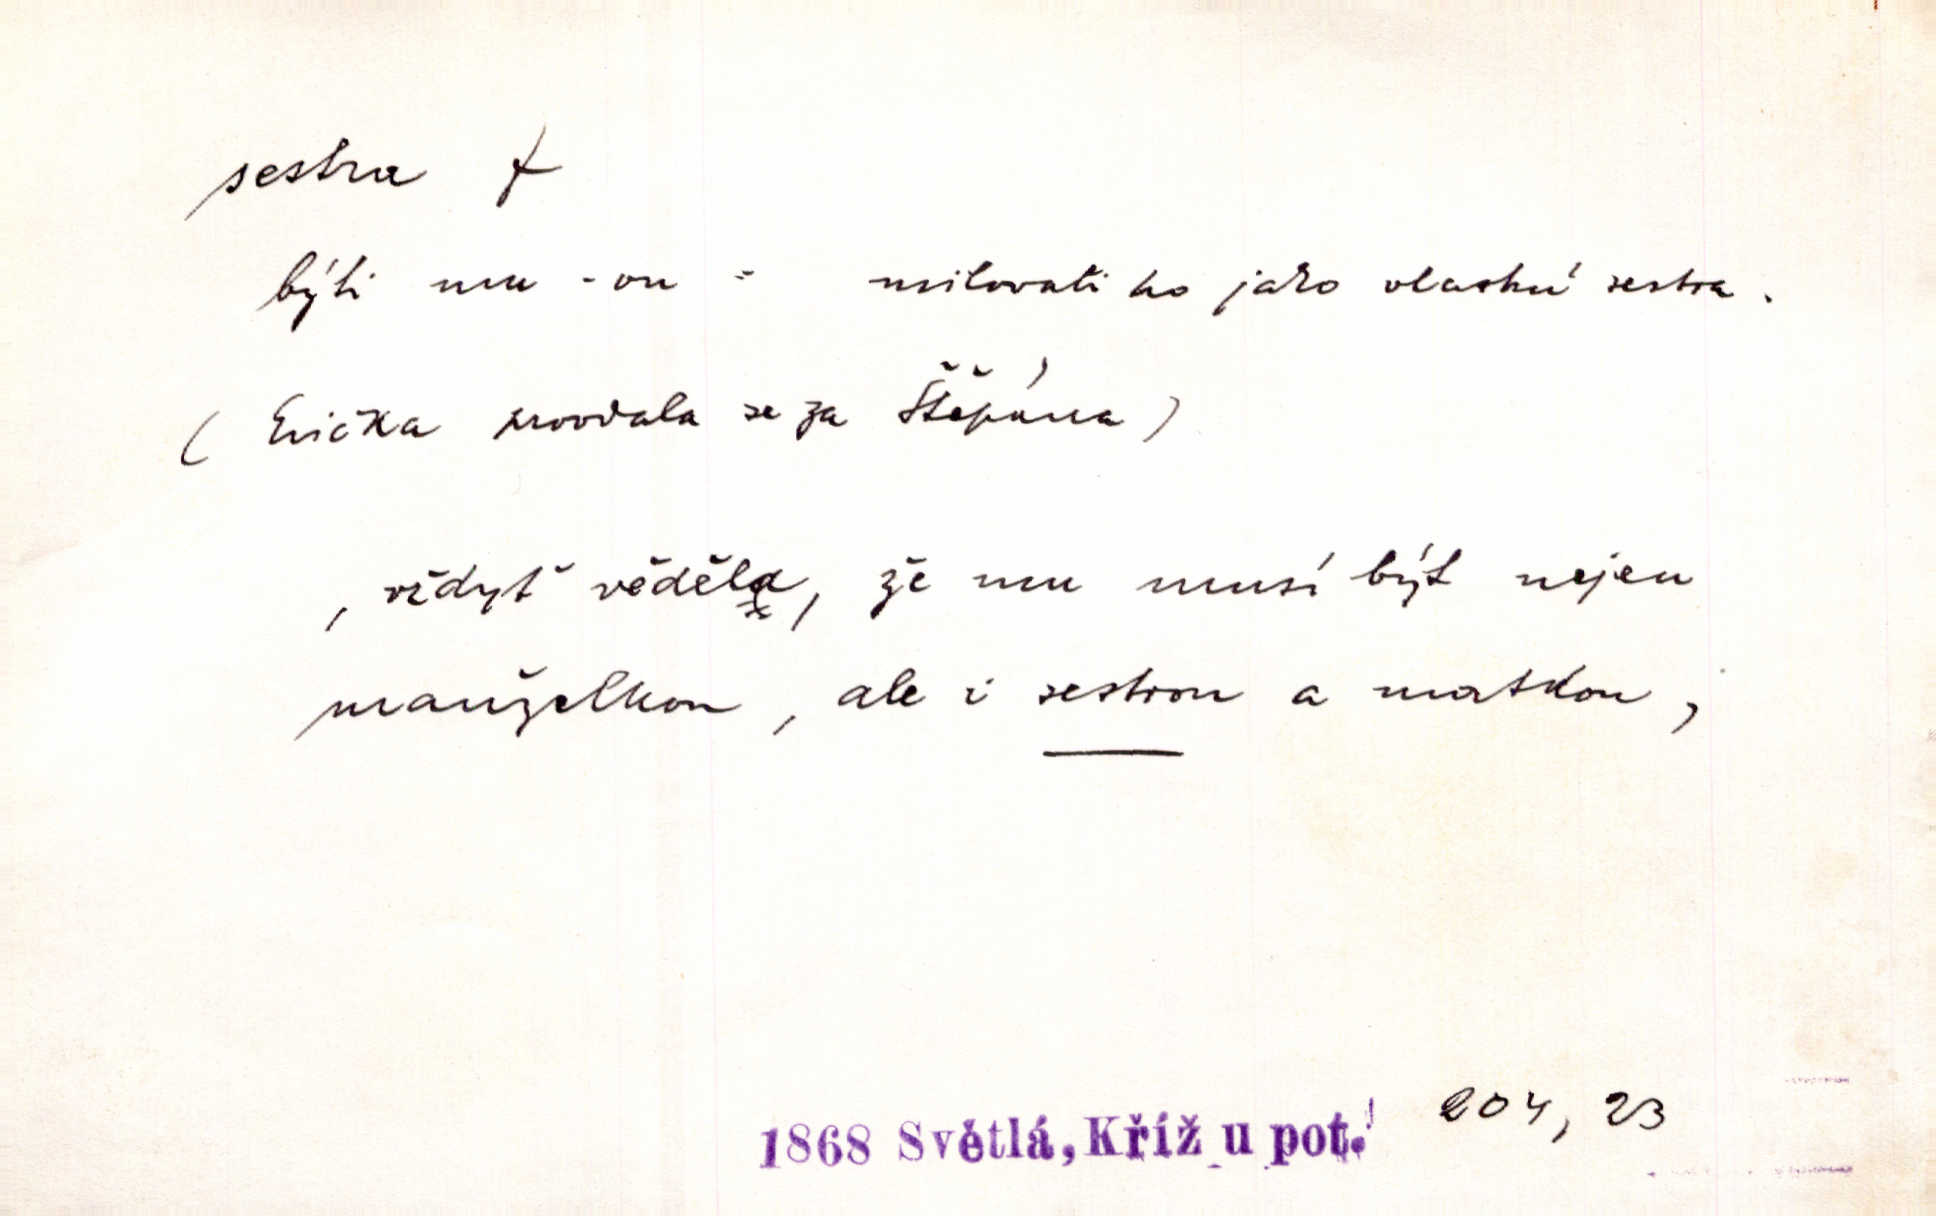 sestra f
býti mu -ou = milovati ho jako vlastní sestra.
( Evička provdala se za Štěpána )
, vždyť věděla, že mu musí být nejen
manželkou, ale i sestrou a matkou,
1868 Světlá, Kříž u pot. 204, 23